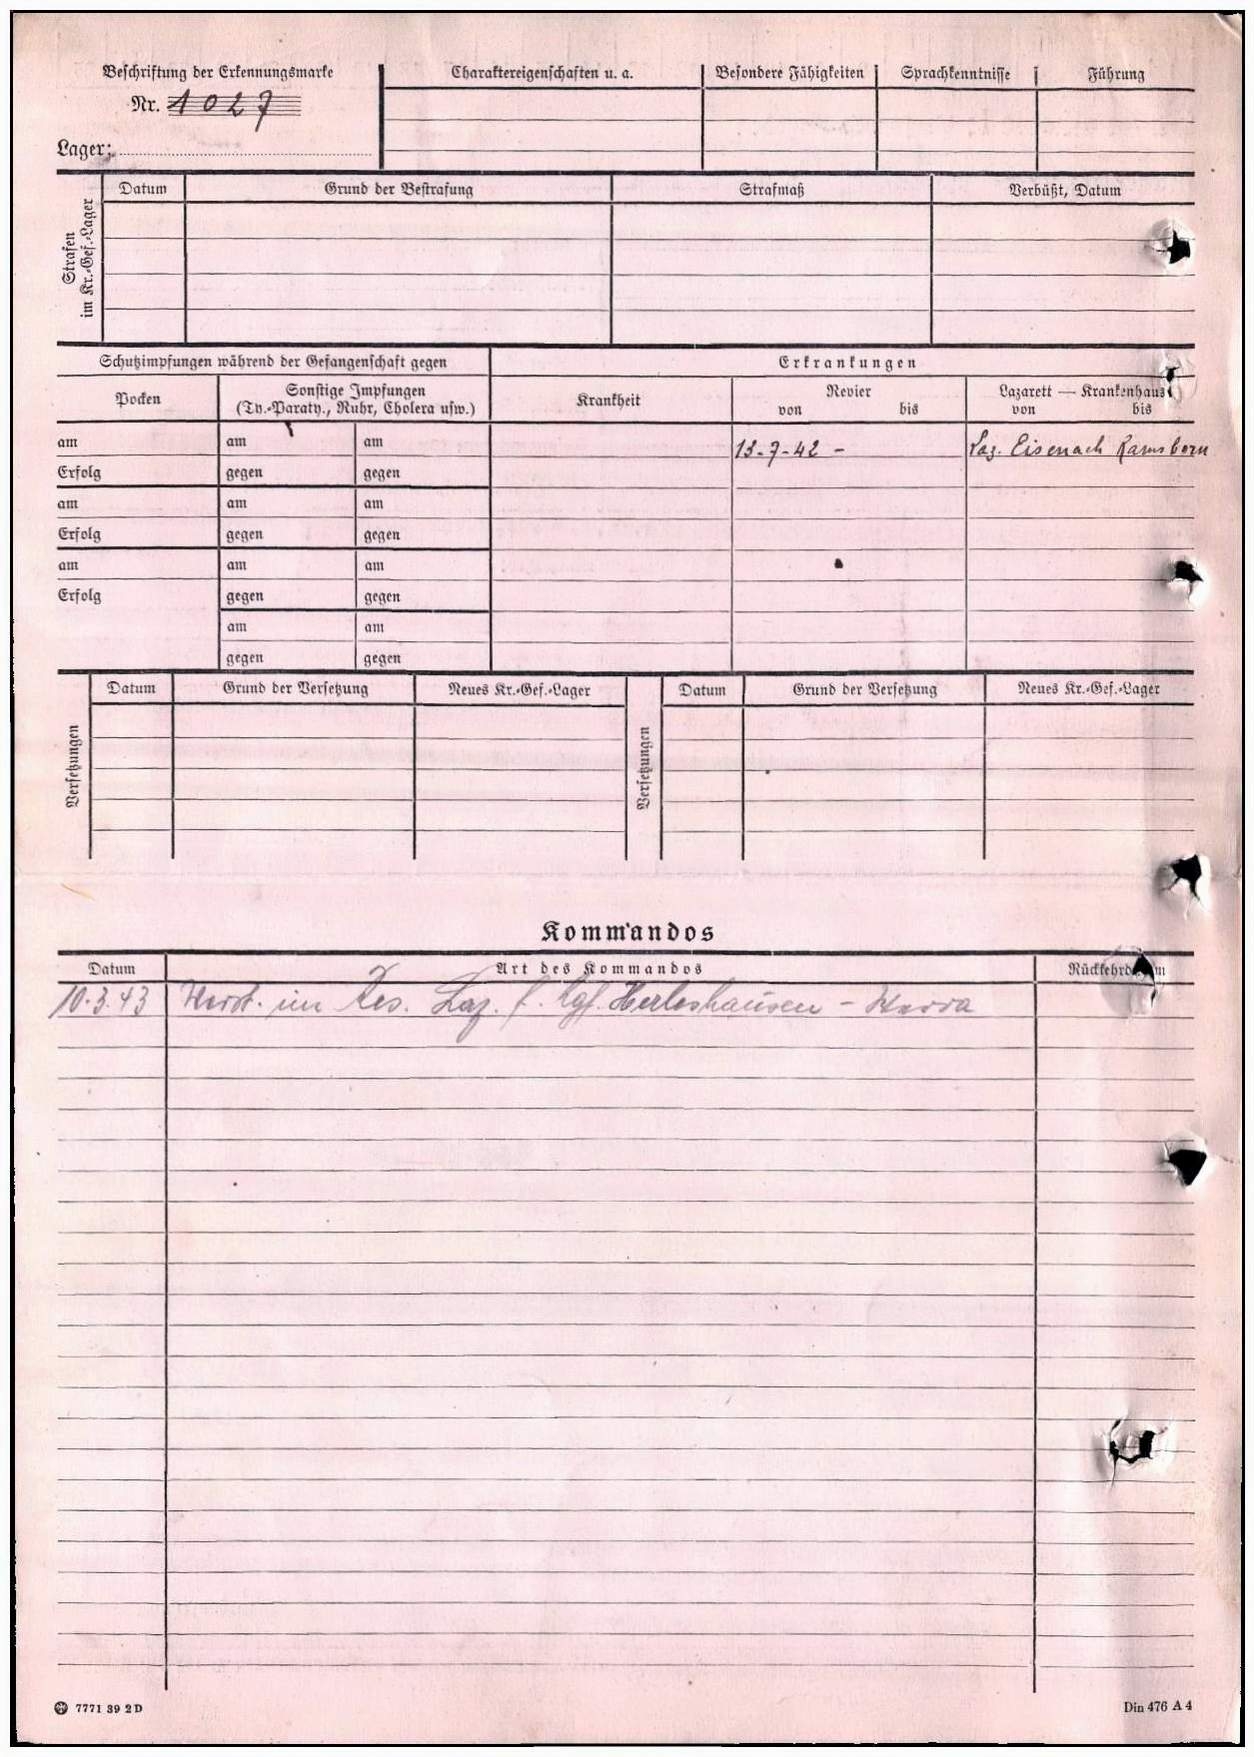 Beschriftung der Erkennungsmarke
Nr. 1027
Lager:
Charaktereigenschaften u. a.
Besondere Fähigkeiten
Sprachkenntnisse
Führung
Strafen
im Kr.-Gef.-Lager
Datum
Grund der Bestrafung
Strafmaß
Verbüßt, Datum
Schutzimpfungen während der Gefangenschaft gegen
Erkrankungen
Pocken
Sonstige Impfungen
(Ty.-Paraty., Ruhr, Cholera usw.)
Krankheit
Revier
von bis
Lazarett — Krankenhaus
von bis
am am am
13-7-42 - Laz. Eisenach Ramsborn
Erfolg gegen gegen
am am am
Erfolg gegen gegen
am am am
Erfolg gegen gegen
am am
gegen gegen
Versetzungen
Datum Grund der Versetzung Neues Kr.-Gef.-Lager
Versetzungen
Datum Grund der Versetzung Neues Kr.-Gef.-Lager
Kommandos
Datum Art des Kommandos
10.3.43 Verst. im Res. Laz. f. Kgf. Herleshausen - Werra
7771 39 2 D
Din 476 A 4